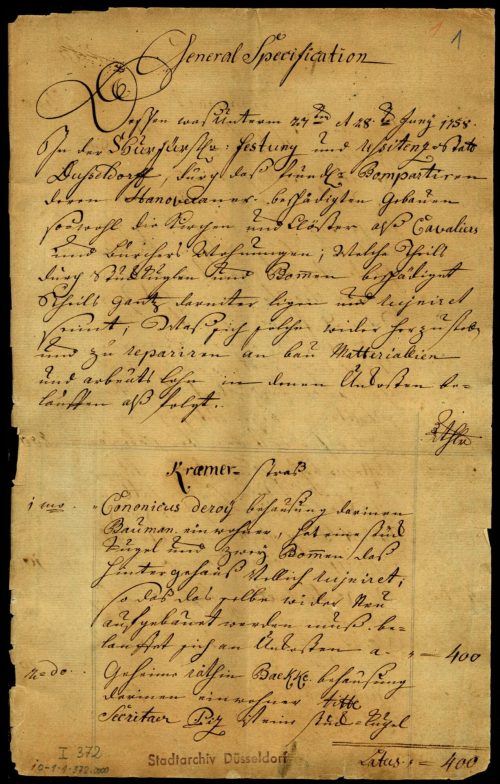 1 1
General Specification
Dessen was unterm 27ten et 28ten Juny 1758.
In der Churfürstl: Festung und Residentz statt
Dusseldorff, durch das feindl: Bompartiren
deren Hanoveraner beschädigten Gebäuen
sowohl die Kirchen und Clöster als Cavaliers
und Bürgers Wohnungen; Welche theils
durch Stückkuglen und Bomen beschädiget
theils gantz darnieder ligen und rujniret
seind, Was sich solche wider herzustellen
und zu repariren an bau Matteriallien
und arbeits lohn in denen Unkosten be-
lauffen alß folgt.
Rthlr
Kræmer- straß
1mo. Cononicus Deroy behausung darinnen
Bauman einwohner, hat eine stück
Kugel und zwey Bomen das
hintergehauß Völlich rujniret,
so das das selbe wider Neu
aufgebauet werden muß, be-
lauffet sich an Unkosten a. " — 400
2do. Geheime räthin Backe behausung
darinnen einwohner
Secritaer stück Kugel
Latus: = 400
I 372
0-1-4-372.000
Stadtarchiv Düsseldorf